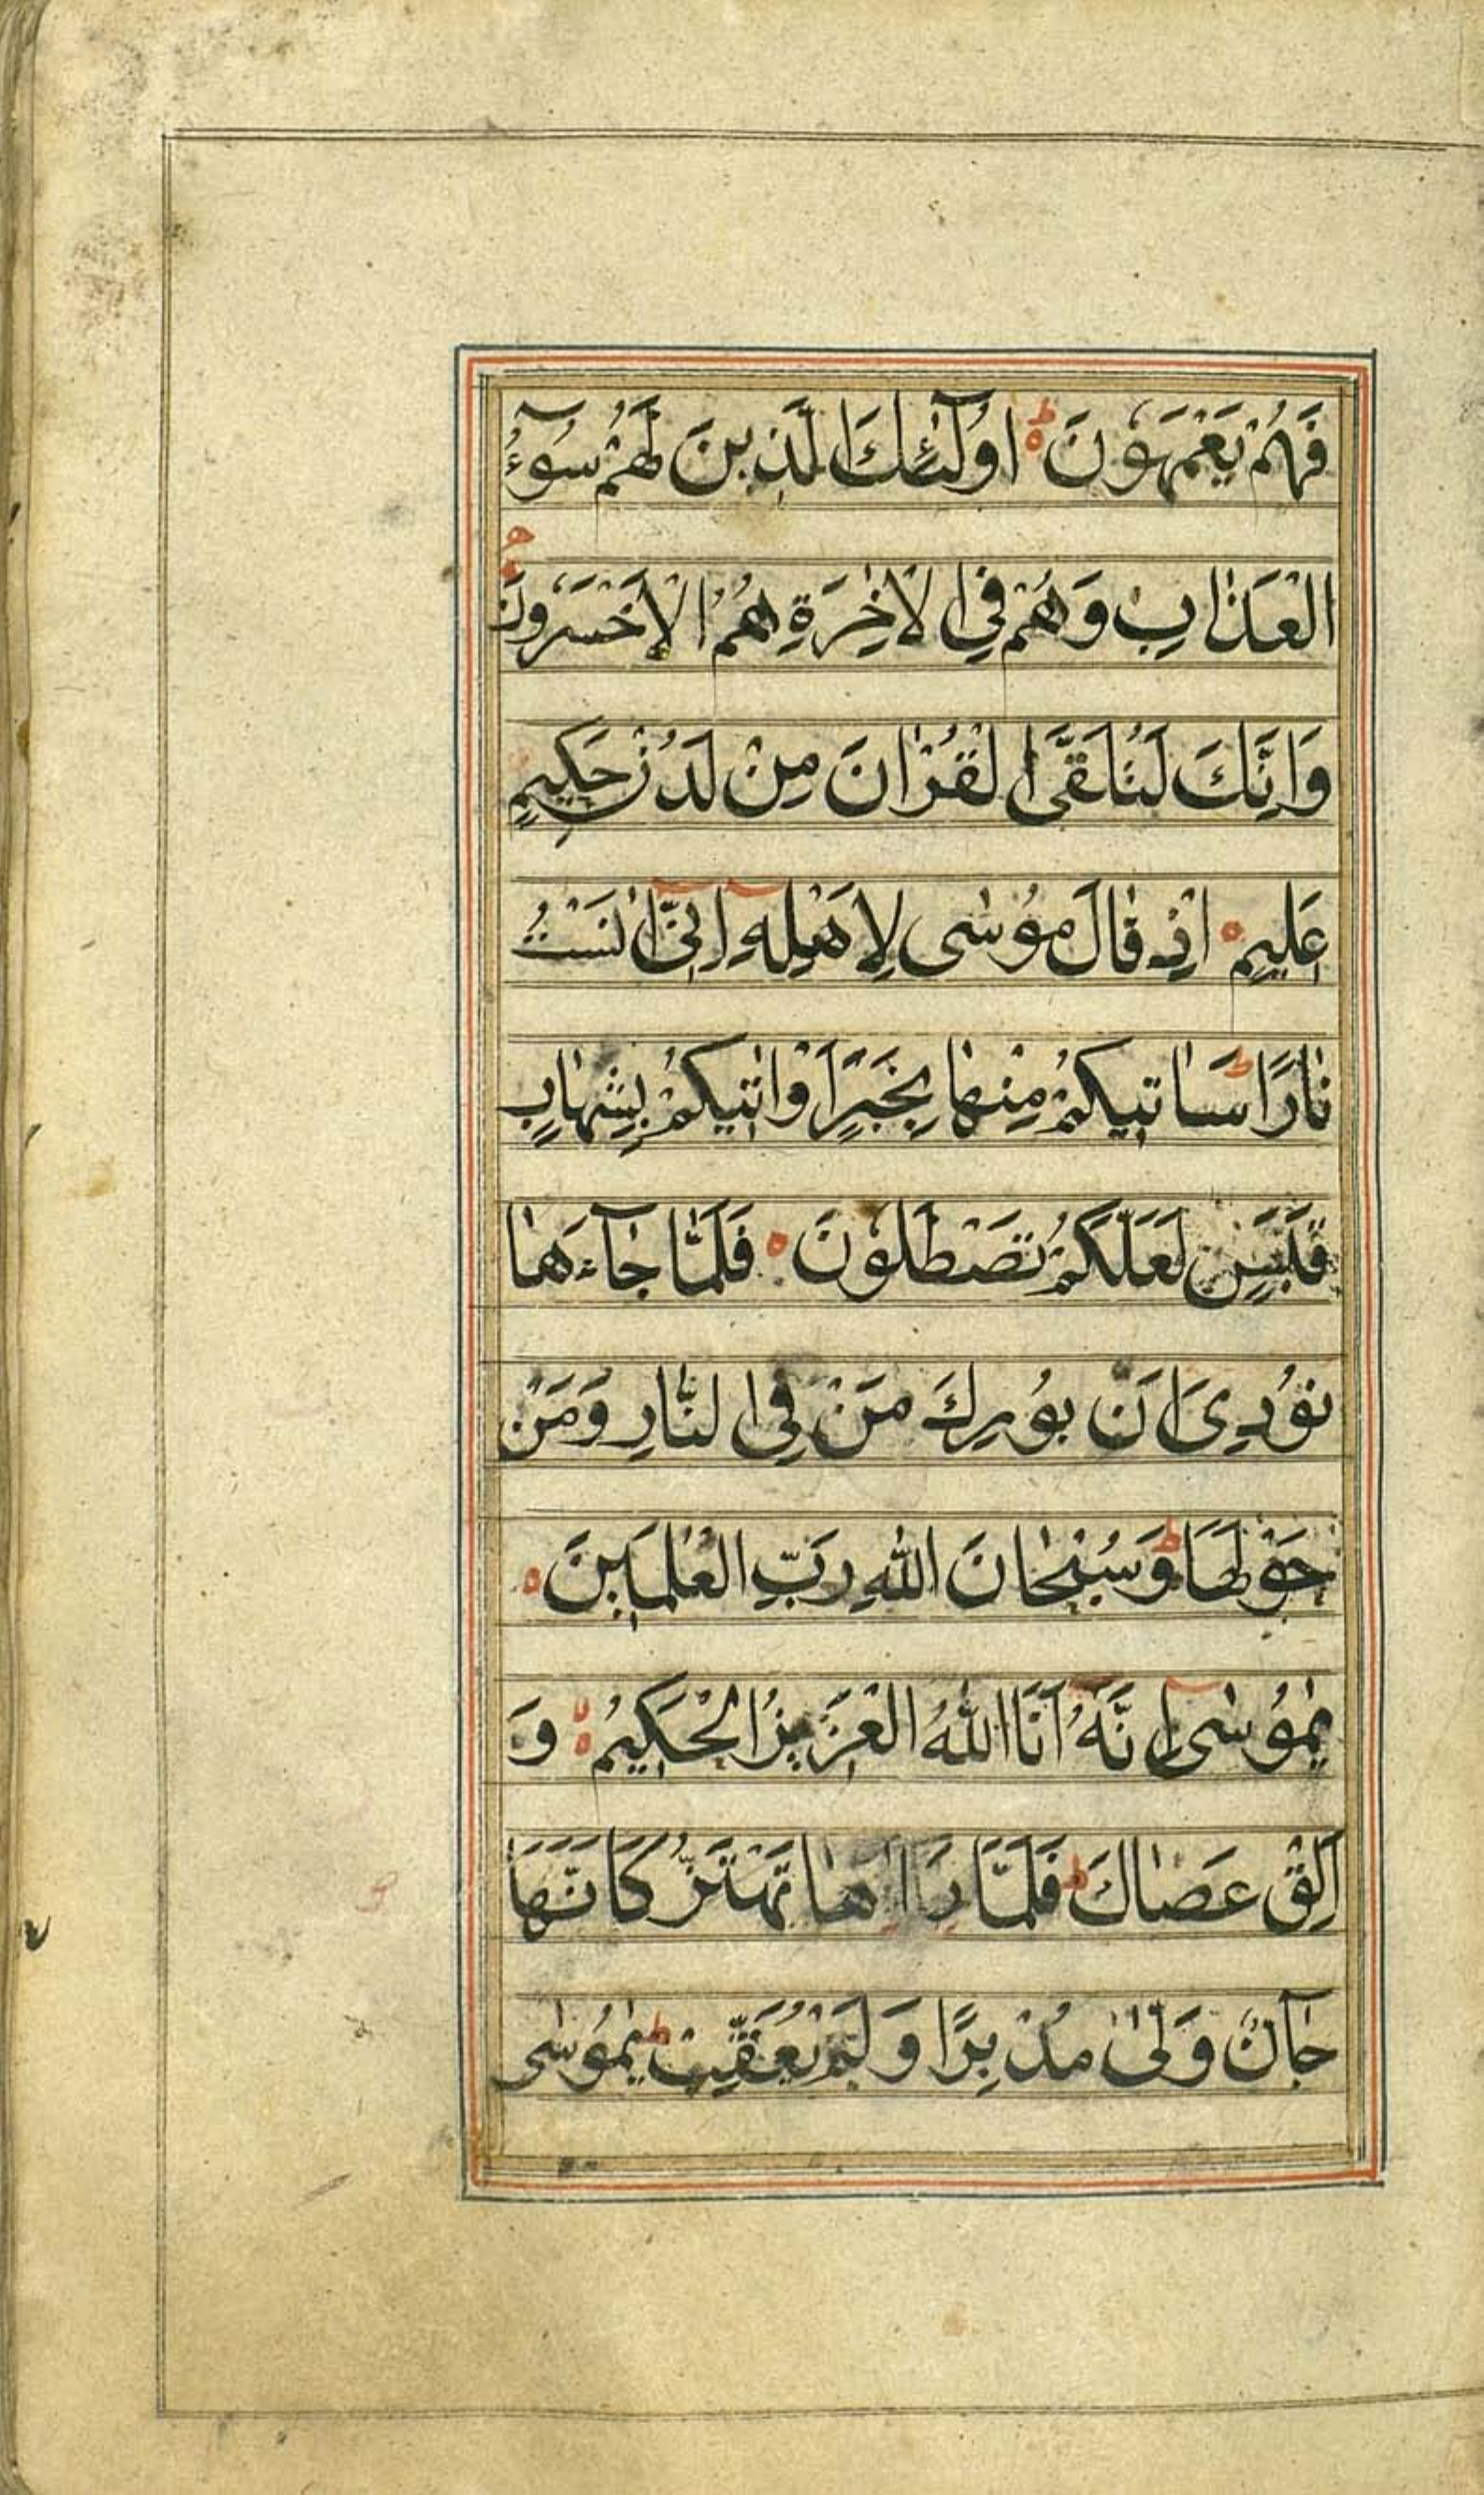 فَهُمْ يَعْمَهُونَ ؕ اُولٰٓئِكَ الَّذِينَ لَهُمْ سُوٓءُ
الْعَذٰابِ وَهُمْ فِي الْاٰخِرَةِ هُمُ الْاَخْسَرُونَ
وَاِنَّكَ لَتُلَقَّى الْقُرْاٰنَ مِنْ لَدُنْ حَكِيمٍ
عَلِيمٍ ۰ اِذْ قٰالَ مُوسٰى لِاَهْلِهِٓ اِنِّىٓ اٰنَسْتُ
نٰارًا ؕ سَاٰتِيكُمْ مِنْهٰا بِخَبَرٍ اَوْ اٰتِيكُمْ بِشِهٰابٍ
قَبَسٍ لَعَلَّكُمْ تَصْطَلُونَ ۰ فَلَمّٰا جٰٓاءَهٰا
نُودِىَ اَنْ بُورِكَ مَنْ فِي النّٰارِ وَمَنْ
حَوْلَهَا ؕ وَسُبْحٰانَ اللّٰهِ رَبِّ الْعٰلَمِينَ ۰
يٰمُوسٰىٓ اِنَّهُٓ اَنَا اللّٰهُ الْعَزِيزُ الْحَكِيمُ ۰ وَ
اَلْقِ عَصٰاكَ ؕ فَلَمّٰا رَاٰهٰا تَهْتَزُّ كَاَنَّهٰا
جٰٓانٌّ وَلّٰى مُدْبِرًا وَلَمْ يُعَقِّبْ ؕ يٰمُوسٰى